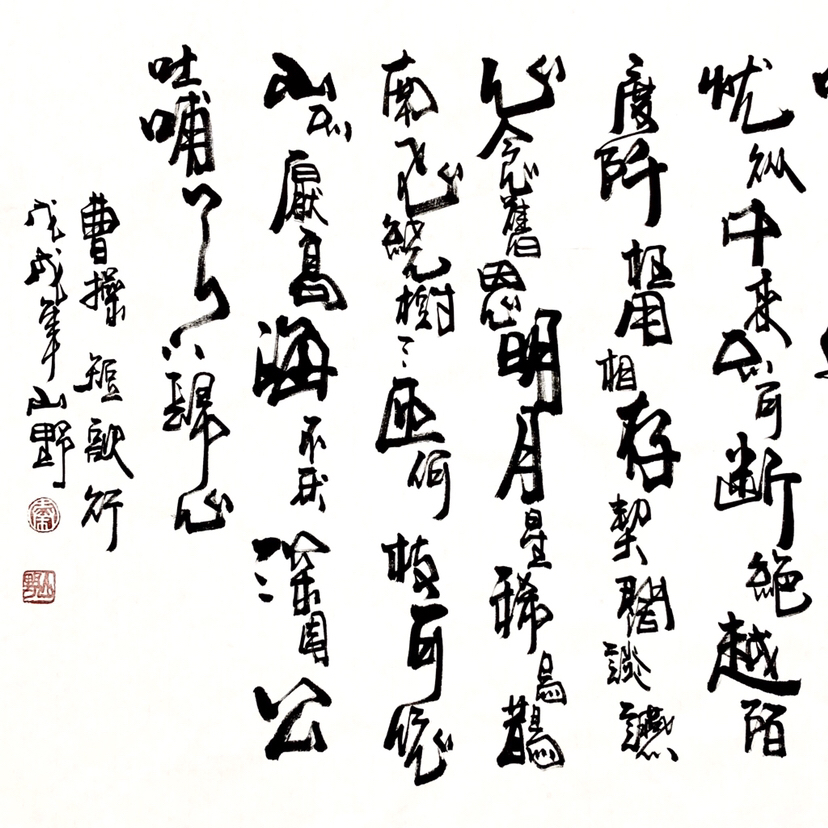 忧从中来不可断絶越陌
度阡枉用相存契闊談讌
心念舊恩明月星稀烏鵲
南飞繞樹三匝何枝可依
山不厭高海不厌深周公
吐哺天下歸心
曹操短歌行
戊戌年山野